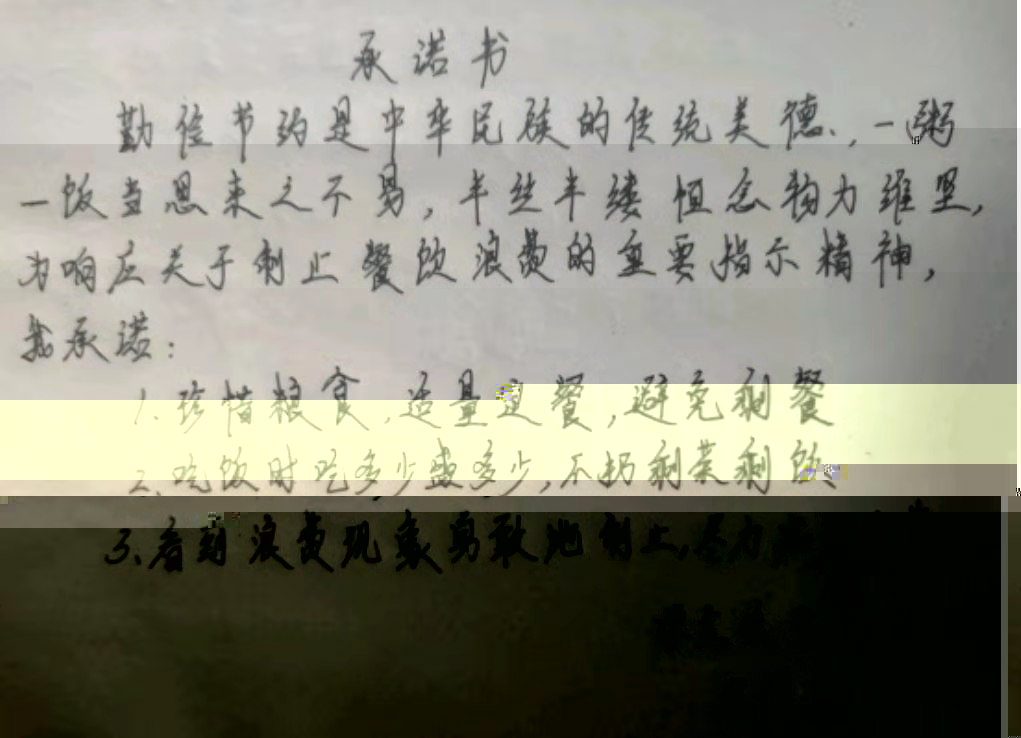 承诺书
勤俭节约是中华民族的传统美德.,一粥
一饭当思来之不易,半丝半缕恒念物力维坚,
为响应关于制止餐饮浪费的重要指示精神,
我承诺:
1.珍惜粮食,适量定餐,避免剩餐
2.吃饭时吃多少盛多少,不扔剩菜剩饭
3.看到浪费现象勇敢地制止,尽力